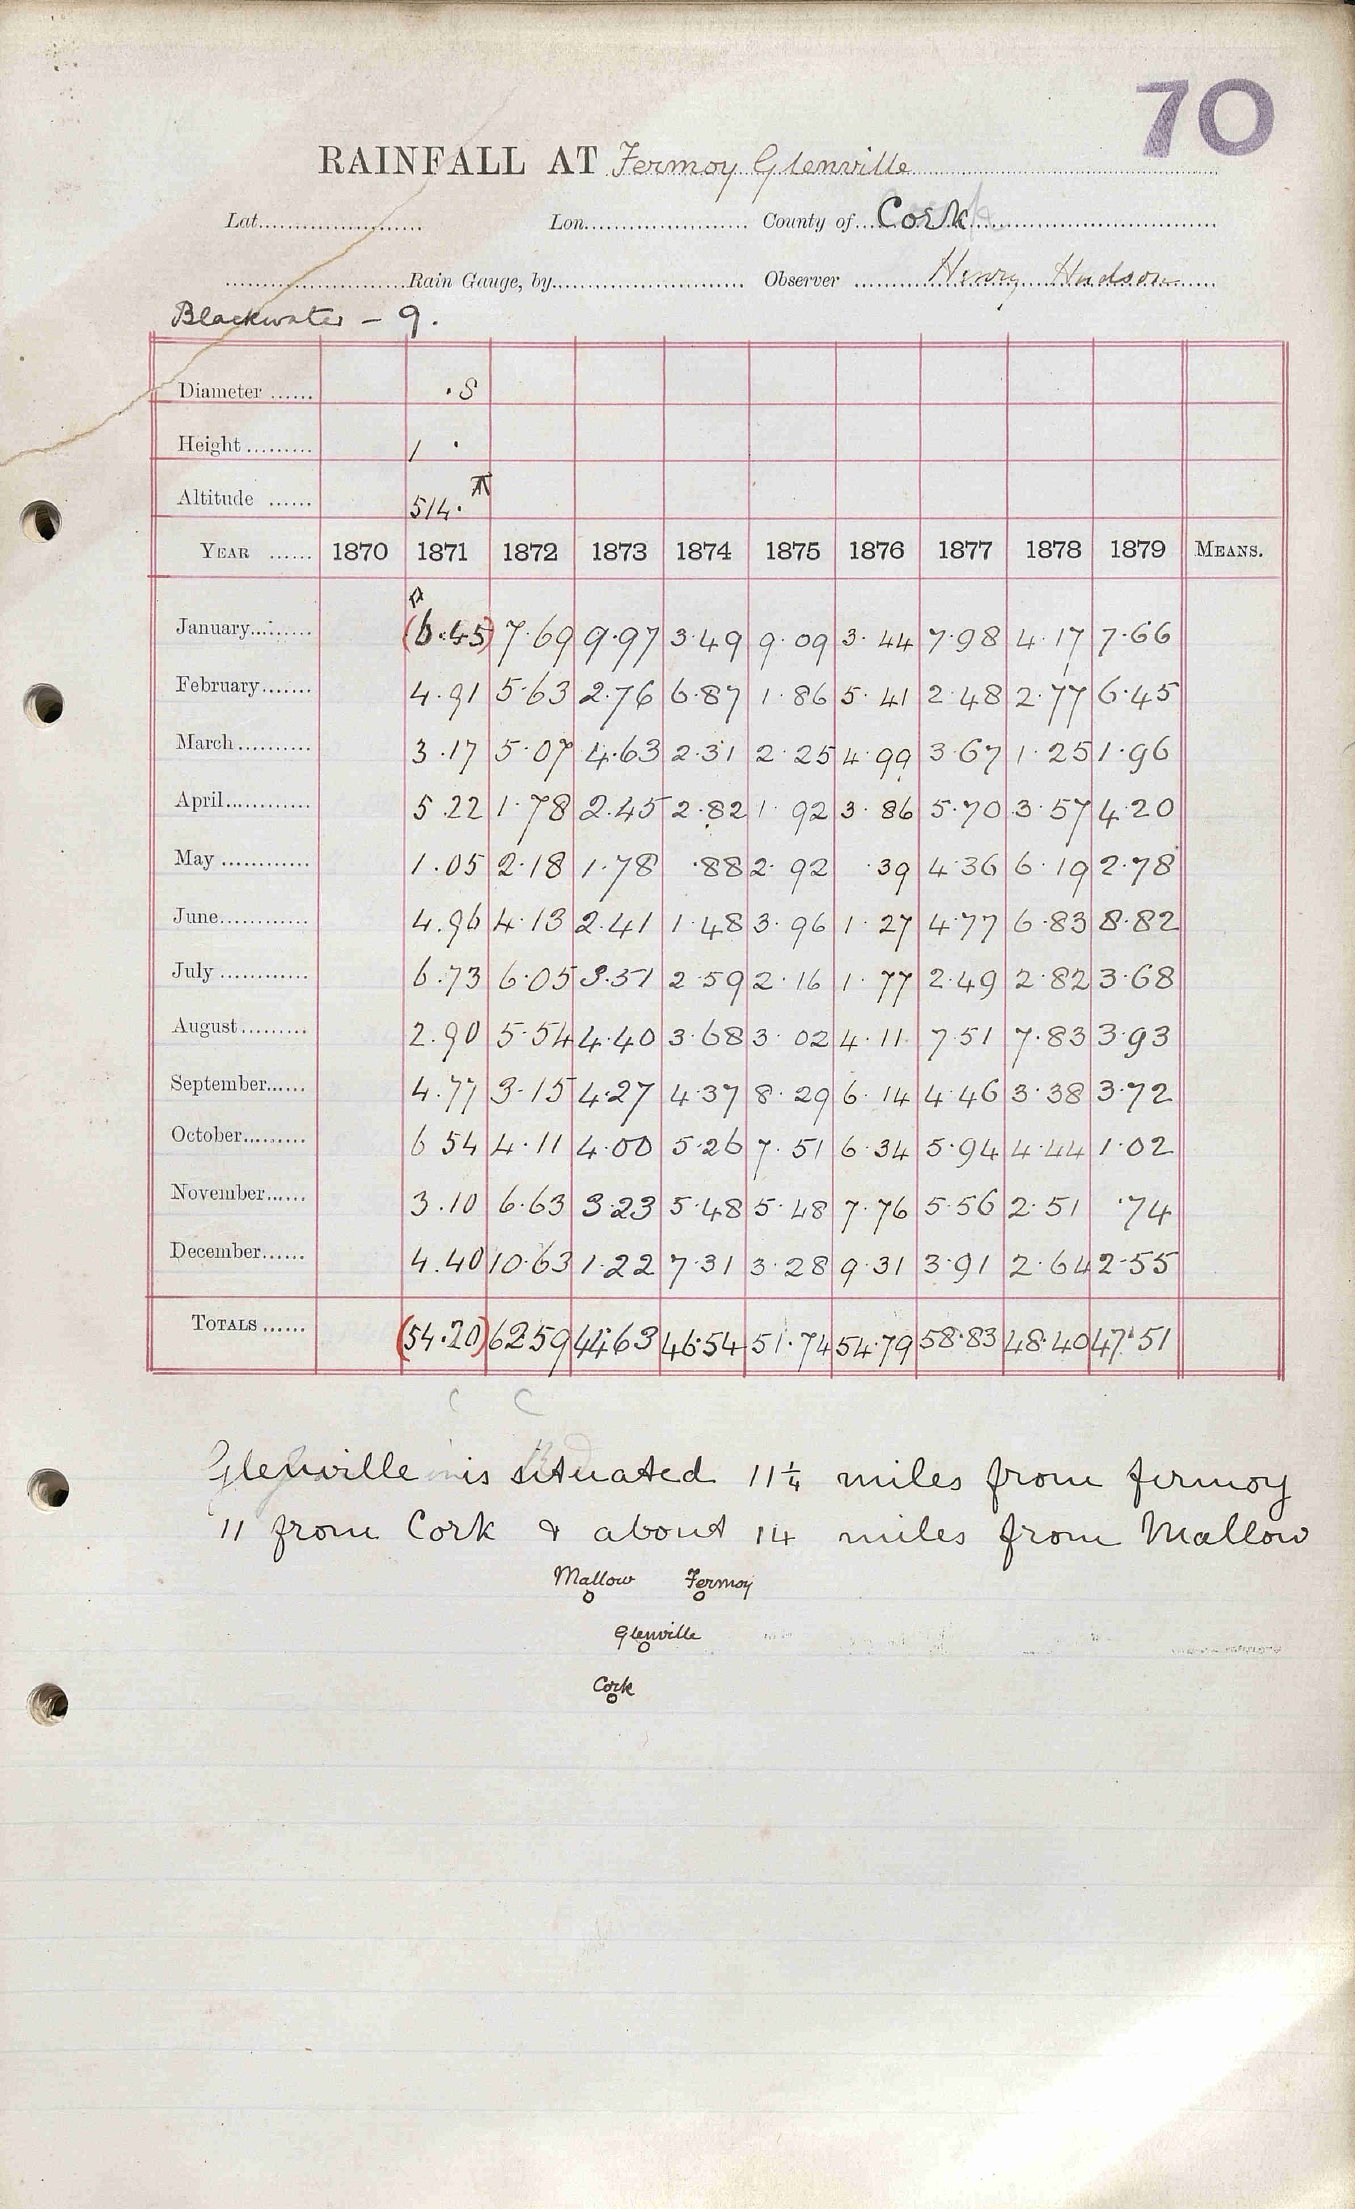 70
RAINFALL AT Fermoy Glenville
Lat. Lon. County of Cork
Rain Gauge, by Observer Henry Hudson
Blackwater - 9.
Diameter ·8
Height 1 ·
Altitude 514·
YEAR 1870 1871 1872 1873 1874 1875 1876 1877 1878 1879 MEANS.
January (6.45) 7.69 9.97 3.49 9.09 3.44 7.98 4.17 7.66
February 4.91 5.63 2.76 6.87 1.86 5.41 2.48 2.77 6.45
March 3.17 5.07 4.63 2.31 2.25 4.99 3.67 1.25 1.96
April 5.22 1.78 2.45 2.82 1.92 3.86 5.70 3.57 4.20
May 1.05 2.18 1.78 .88 2.92 .39 4.36 6.19 2.78
June 4.96 4.13 2.41 1.48 3.96 1.27 4.77 6.83 8.82
July 6.73 6.05 3.51 2.59 2.16 1.77 2.49 2.82 3.68
August 2.90 5.54 4.40 3.68 3.02 4.11 7.51 7.83 3.93
September 4.77 3.15 4.27 4.37 8.29 6.14 4.46 3.38 3.72
October 6 54 4.11 4.00 5.26 7.51 6.34 5.94 4.44 1.02
November 3.10 6.63 3.23 5.48 5.48 7.76 5.56 2.51 .74
December 4.40 10.63 1.22 7.31 3.28 9.31 3.91 2.64 2.55
TOTALS (54.20) 62.59 44.63 46.54 51.74 54.79 58.83 48.40 47.51
Glenville is situated 11¼ miles from fermoy
11 from Cork & about 14 miles from Mallow
Mallow Fermoy
Glenville
Cork